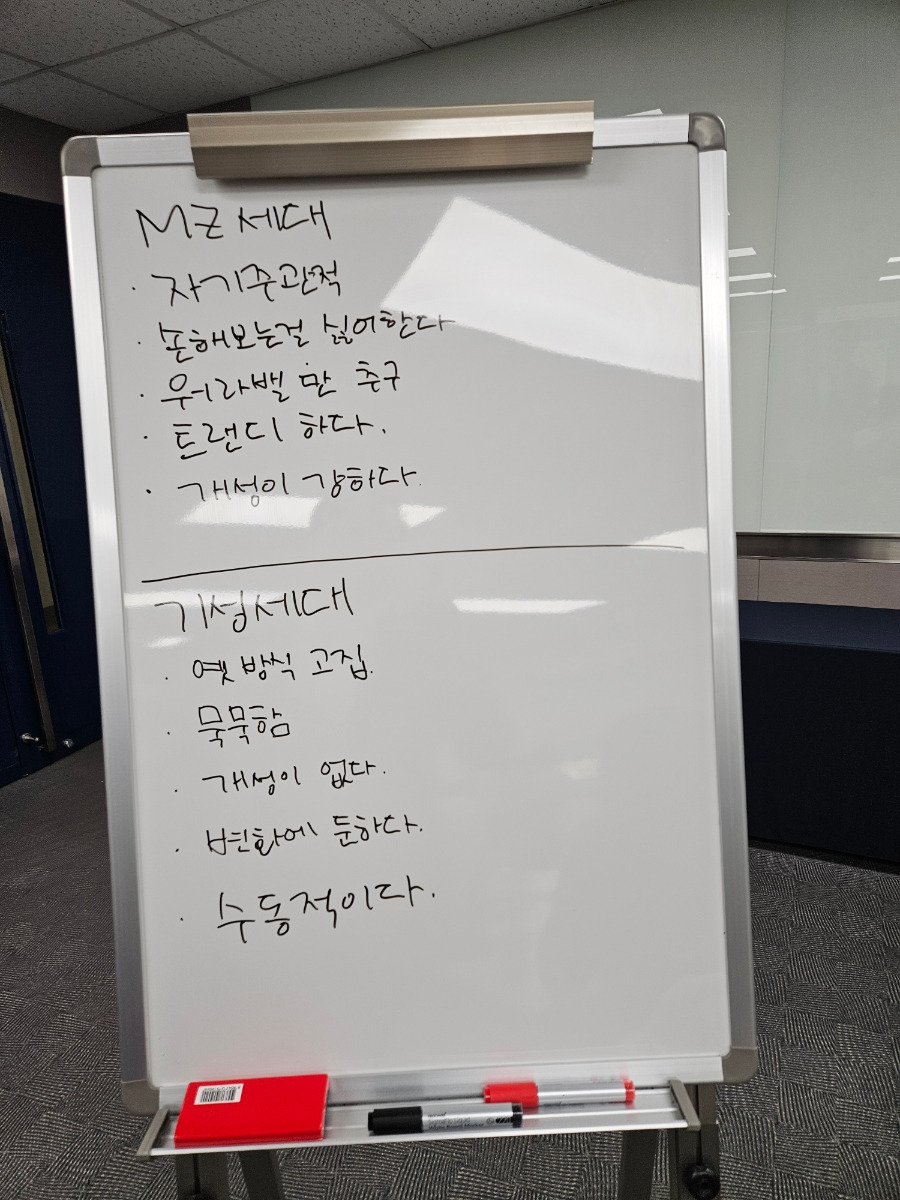 MZ세대
· 자기주관적
· 손해보는걸 싫어한다
· 워라벨 만 추구
· 트랜디 하다.
· 개성이 강하다.
기성세대
· 옛 방식 고집.
· 묵묵함
· 개성이 없다.
· 변화에 둔하다.
· 수동적이다.